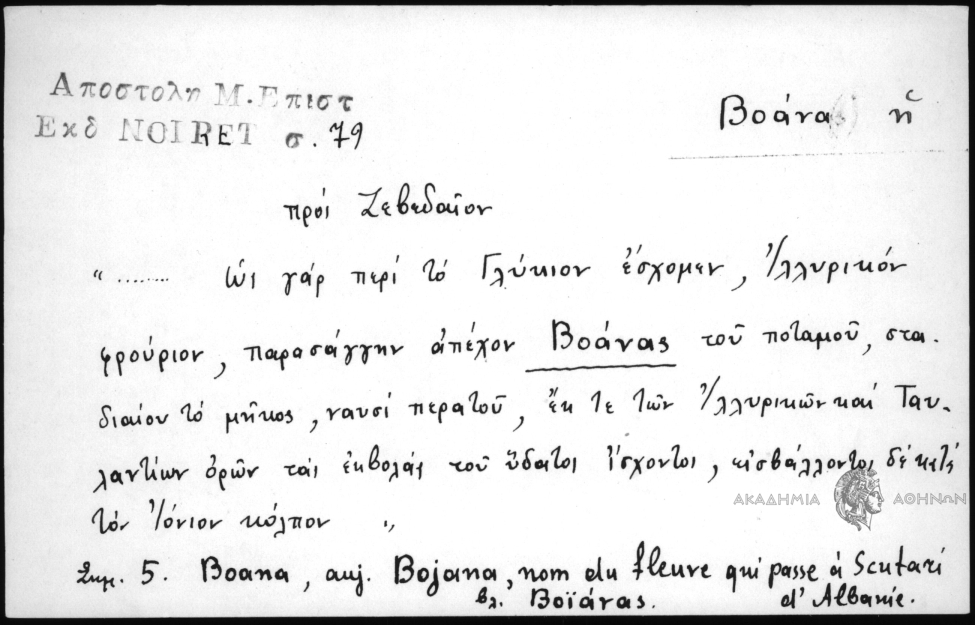 Αποστολη Μ. Επιστ
Εκδ NOIRET σ. 79
Βοάνα ἡ
πρὸς Ζεβεδαῖον
"........ Ὡς γάρ περί τό Γλύκιον ἔσχομεν, Ἰλλυρικόν
φρούριον, παρασάγγην ἀπέχον Βοάνας τοῦ ποταμοῦ, στα-
διαίου τό μῆκος, ναυσί περατοῦ, ἔκ τε τῶν Ἰλλυρικῶν καί Ταυ-
λαντίων ὁρῶν τάς ἐκβολάς τοῦ ὕδατος ἴσχοντος, εἰσβάλλοντος δέ
τόν Ἰόνιον κόλπον "
ΑΚΑΔΗΜΙΑ ΑΘΗΝΩΝ
Σημ. 5. Boana, auj. Bojana, nom du fleuve qui passe à Scutari
d'Albanie.
βλ. Βοϊάνας.